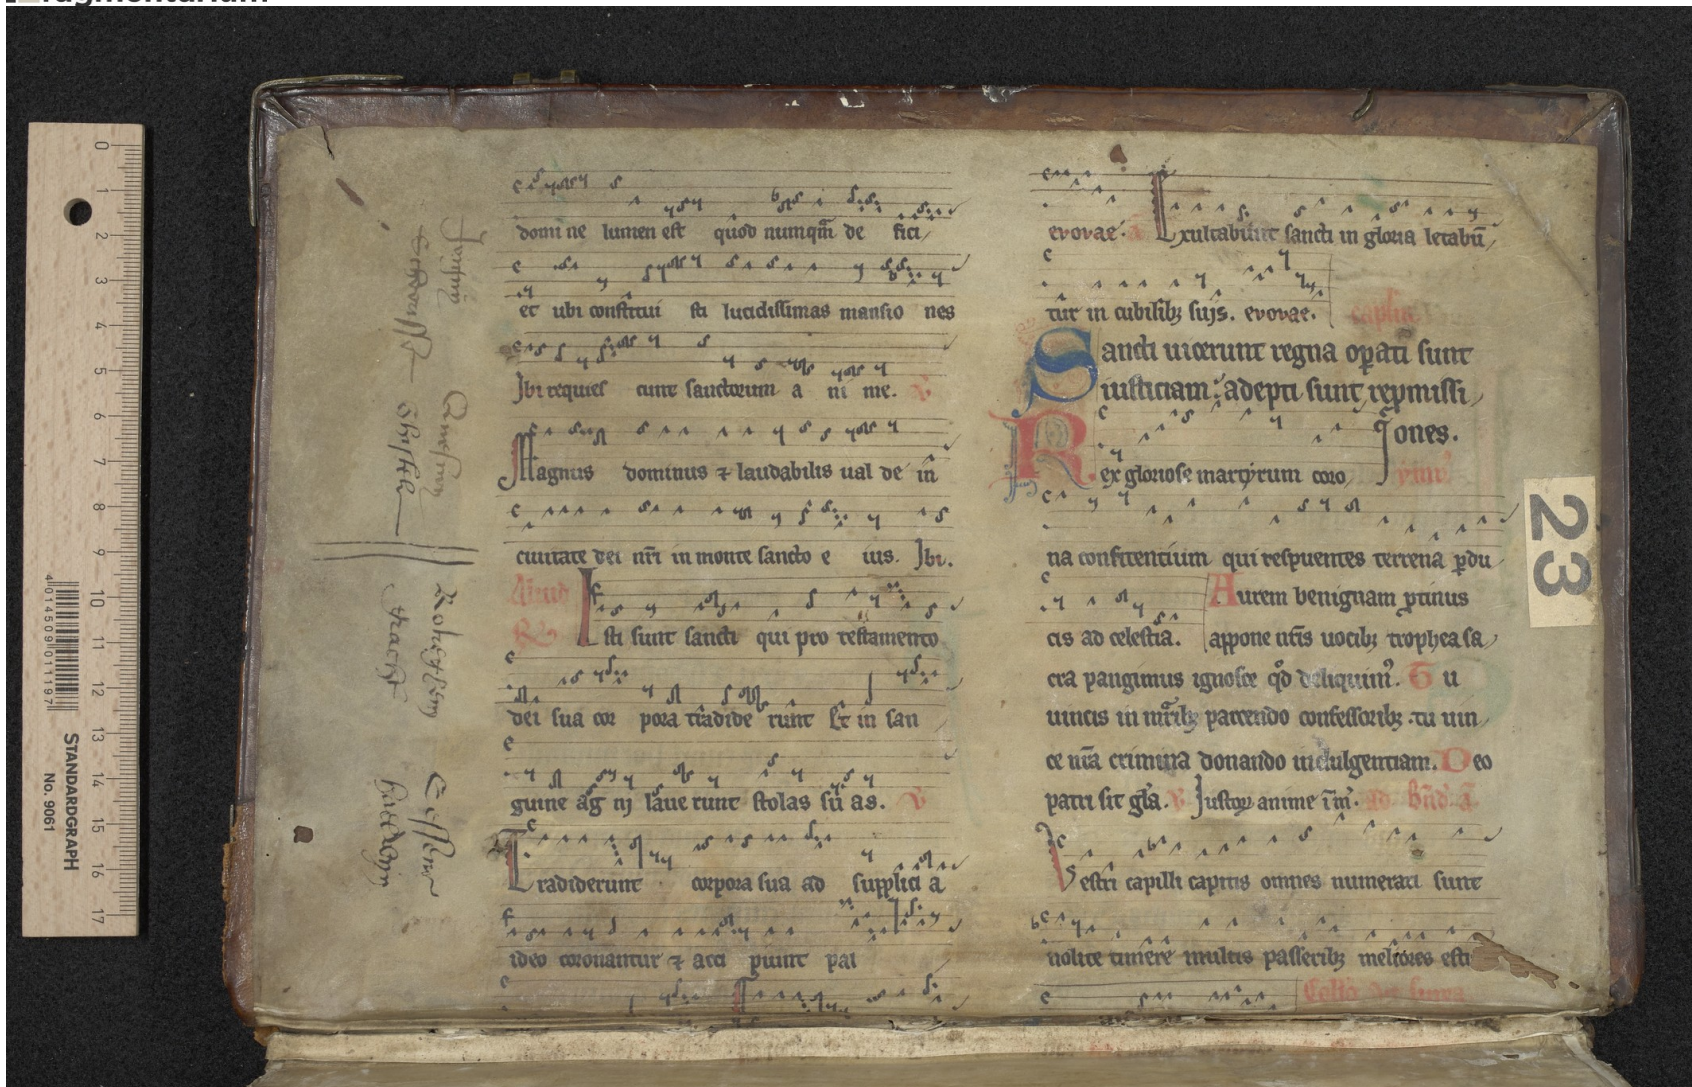 domine lumen est quod numq̄m de fici
et ubi constitui sti lucidissimas mansio nes
Ibi requies cunt sanctorum a ni me. V
Magnus dominus ⁊ laudabilis ual de in
ciuitate dei nr̄i in monte sancto e ius. Ibi.
Aliud
R Isti sunt sancti qui pro testamento
dei sua cor pora tradide runt Et in san
guine ag nj laue runt stolas su as. V
Tradiderunt corpora sua ad supplici a
ideo coronantur ⁊ acci piunt pal
evovae. a Exultabunt sancti in gloria letabū
tur in cubilibꝫ suis. evovae. capl̄m
Sancti uicerunt regna opati sunt
iusticiam. adepti sunt repmissi
ones.
Rex gloriose martyrum coro ymn⁹
na confitentium qui respuentes terrena ꝑdu
cis ad celestia. Aurem benignam ꝓtinus
appone nr̄is uocibꝫ trophea sa
cra pangimus ignosce qd̄ deliquim⁹. Tu
uincis in mr̄ibꝫ parcendo confessoribꝫ. tu uin
ce nr̄a crimina donando indulgentiam. Deo
patri sit gl̄a. V Iustoꝝ anime ī m̄. ad Bn̄d. a
Vestri capilli capitis omnes numerati sunt
nolite timere multis passeribꝫ meliores esti
23
0 1 2 3 4 5 6 7 8 9 10 11 12 13 14 15 16 17
4 014509 011197
STANDARDGRAPH
No. 9061